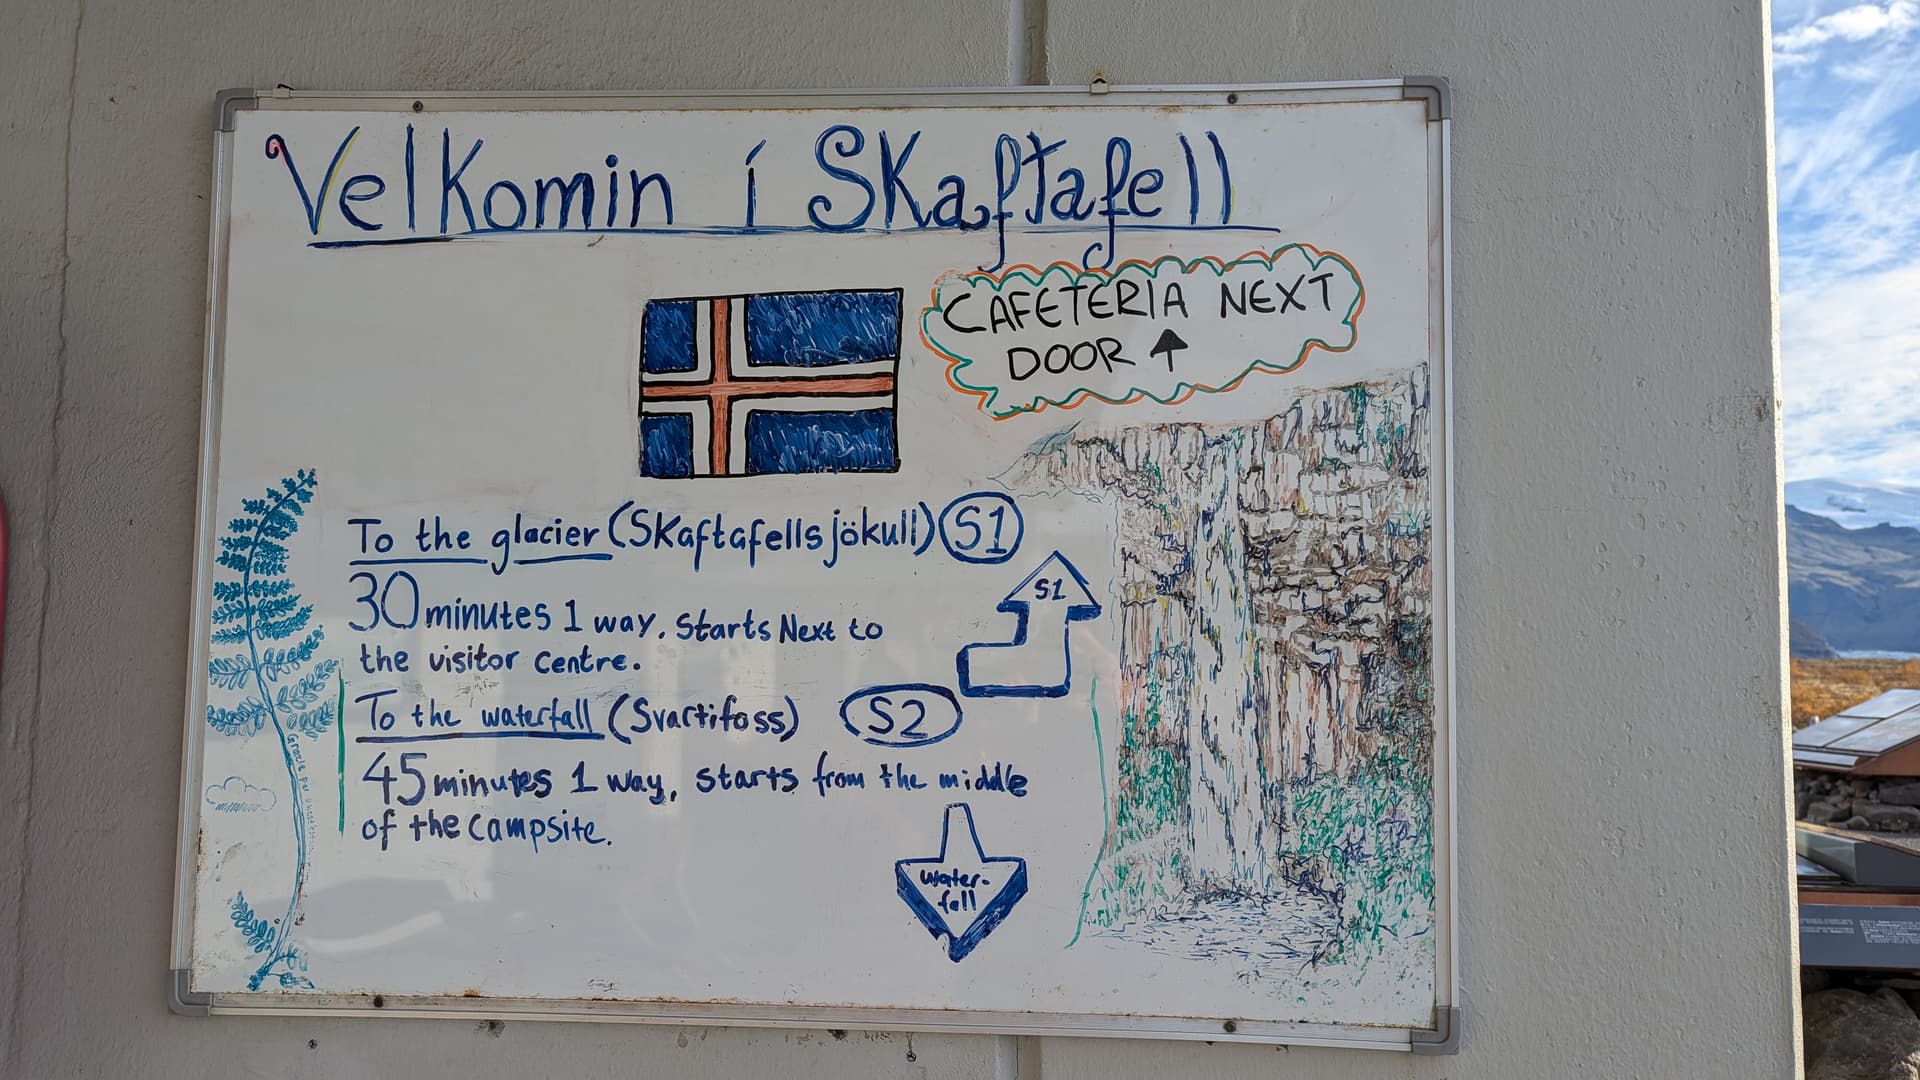 Velkomin í Skaftafell
CAFETERIA NEXT
DOOR ↑
To the glacier (Skaftafellsjökull) S1
30 minutes 1 way. Starts Next to
the visitor centre.
S1
To the waterfall (Svartifoss) S2
45 minutes 1 way, starts from the middle
of the campsite.
water-
fall